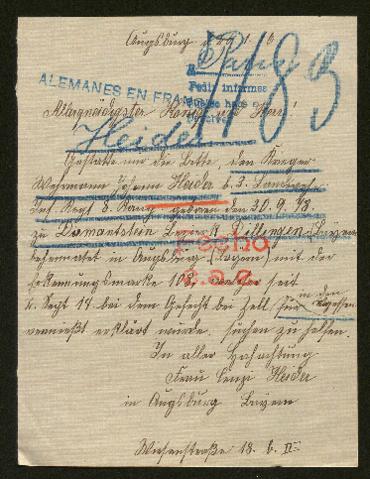 Augsburg d.
ALEMANES EN FRAN
Pedir informes
Allergnädigster König und Herr!
Heider
483
Gestatte mir die Bitte, den Krieger
Wehrmann Johann Heider b. 3. Landwehr
Inf. Regt 8. Komp. geboren den 30. 9. 83.
zu Diemantstein Bezirk Dillingen Bayern
beheimatet in Augsburg (Bayern) mit der
Erkennungsmarke 108, welcher seit
4. Sept 14 bei dem Gefecht bei Zell, in den Vogesen
vermißt erklärt wurde, suchen zu helfen.
Fecho
In aller Hochachtung
Frau Heider
in Augsburg Bayern
Wiesenstraße 18. b. II